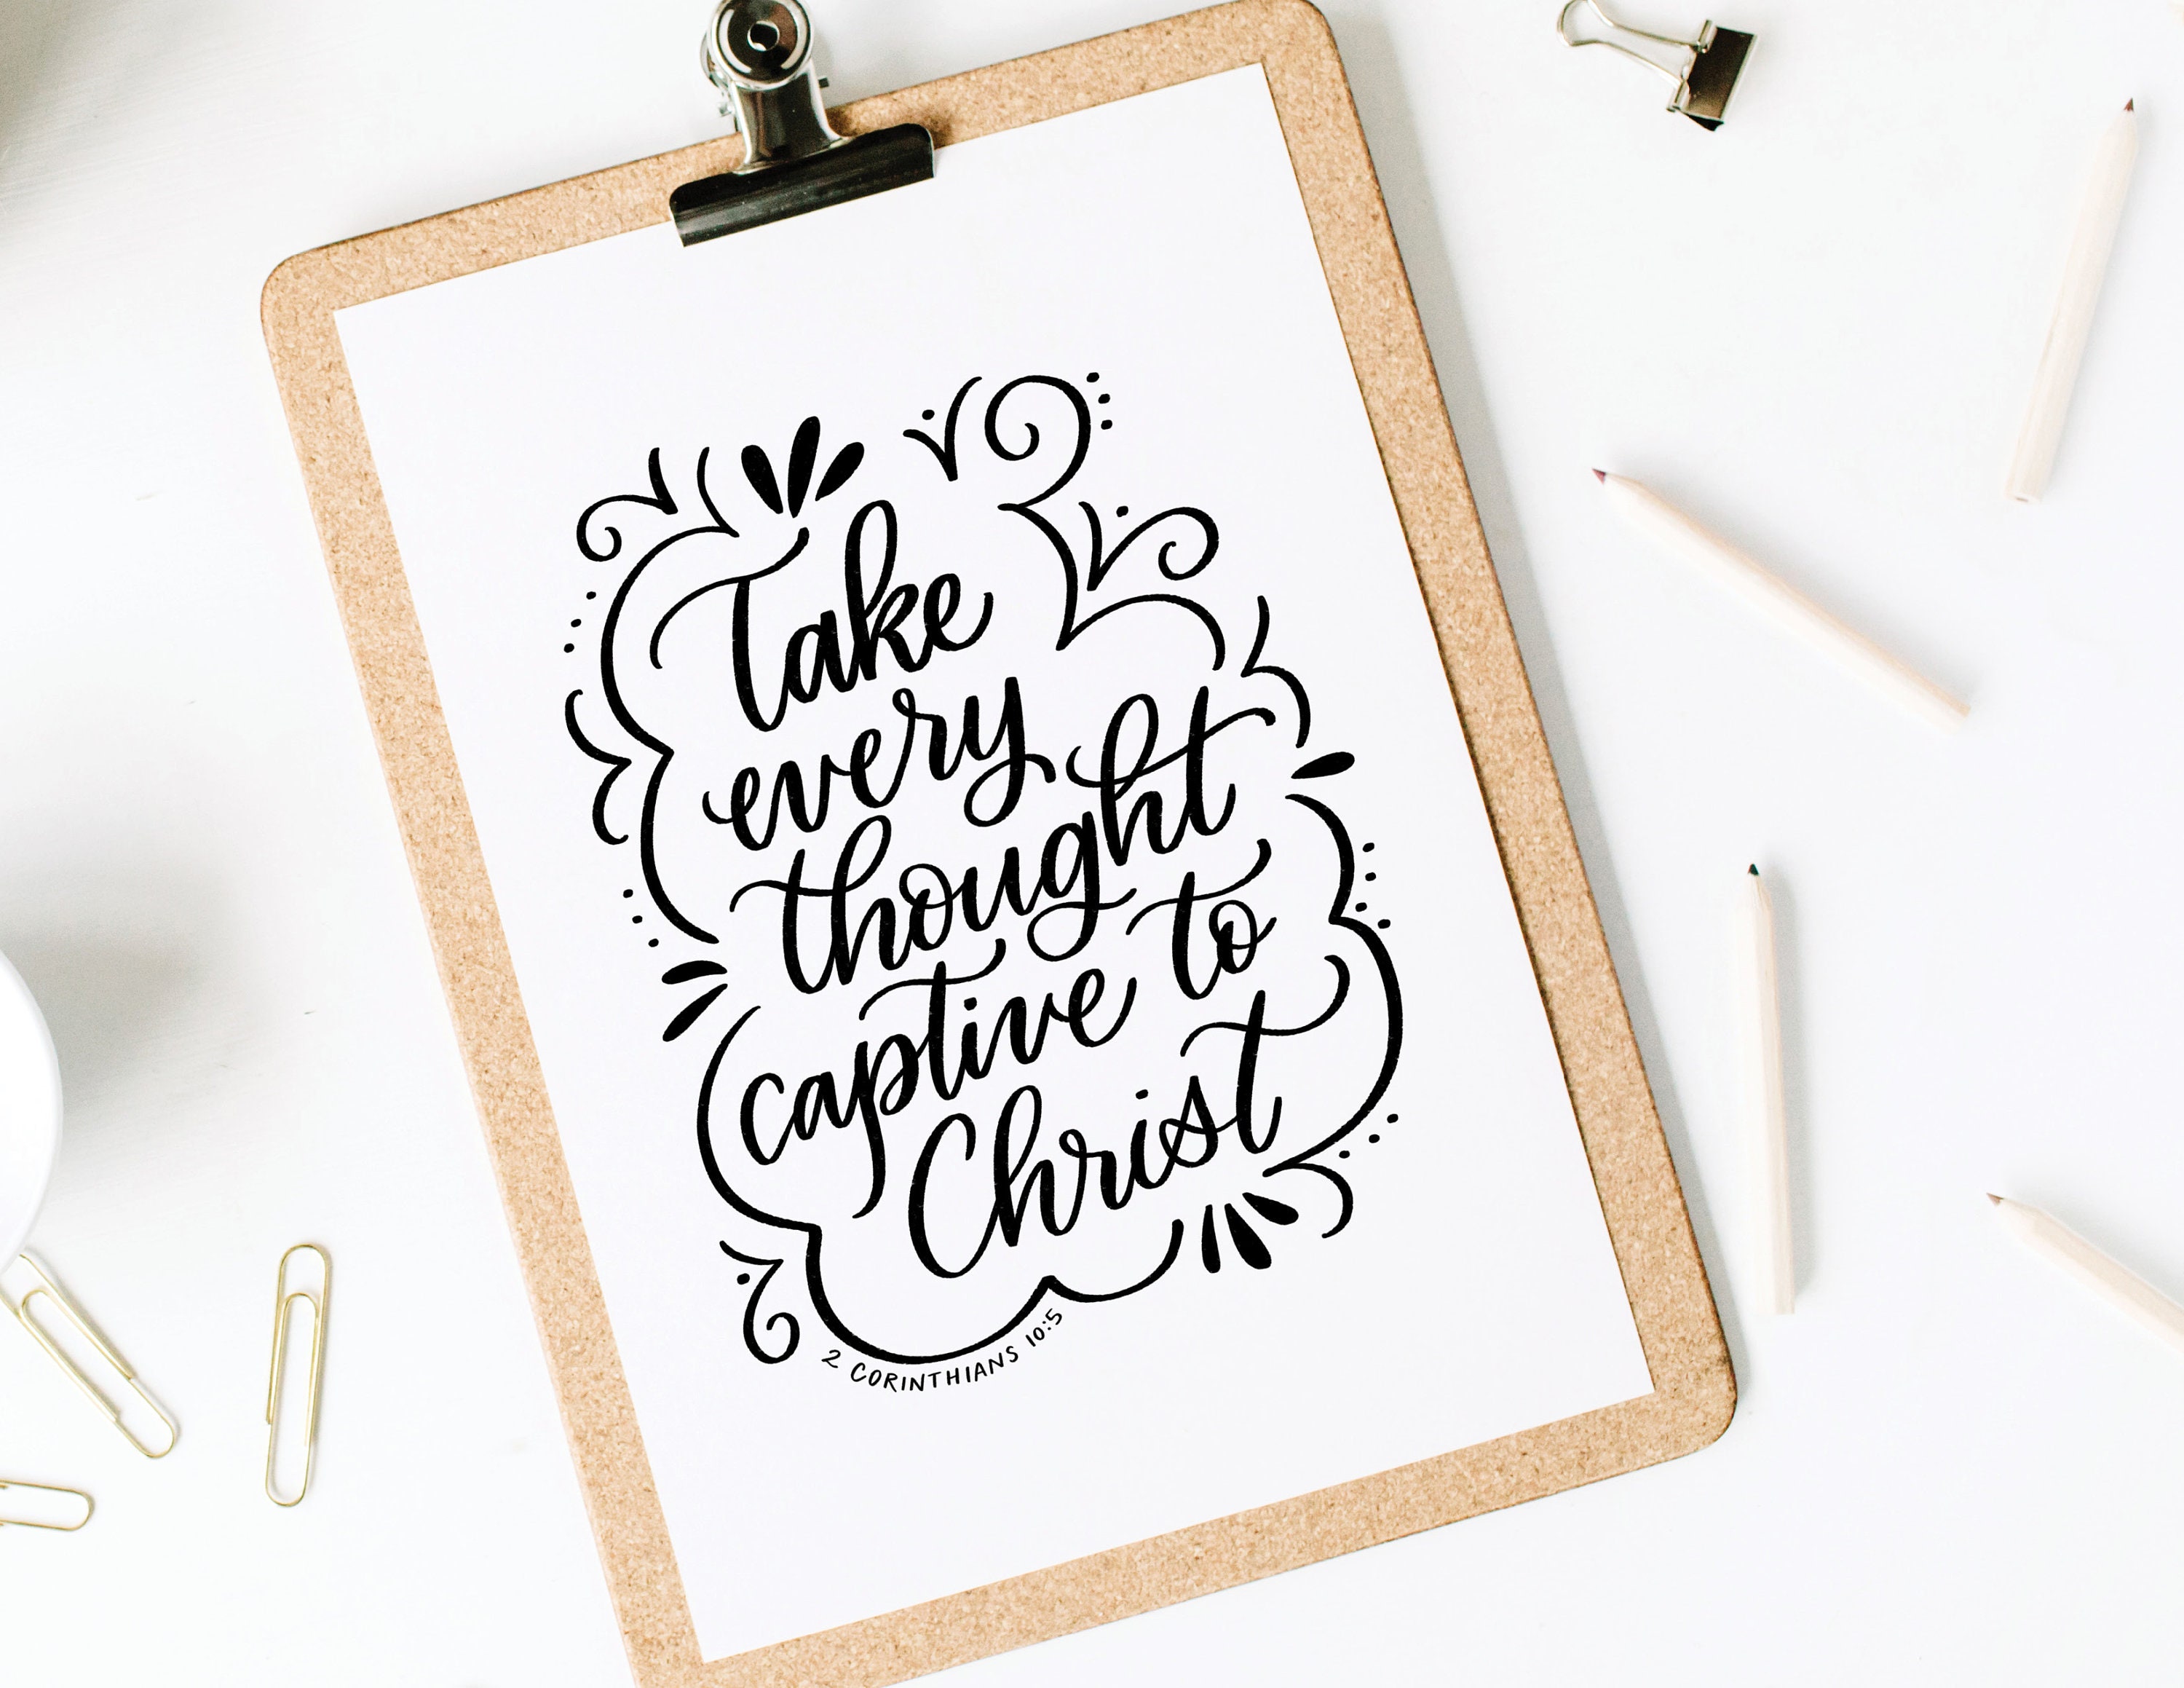 Take
every
thought
captive to
Christ
2 CORINTHIANS 10:5